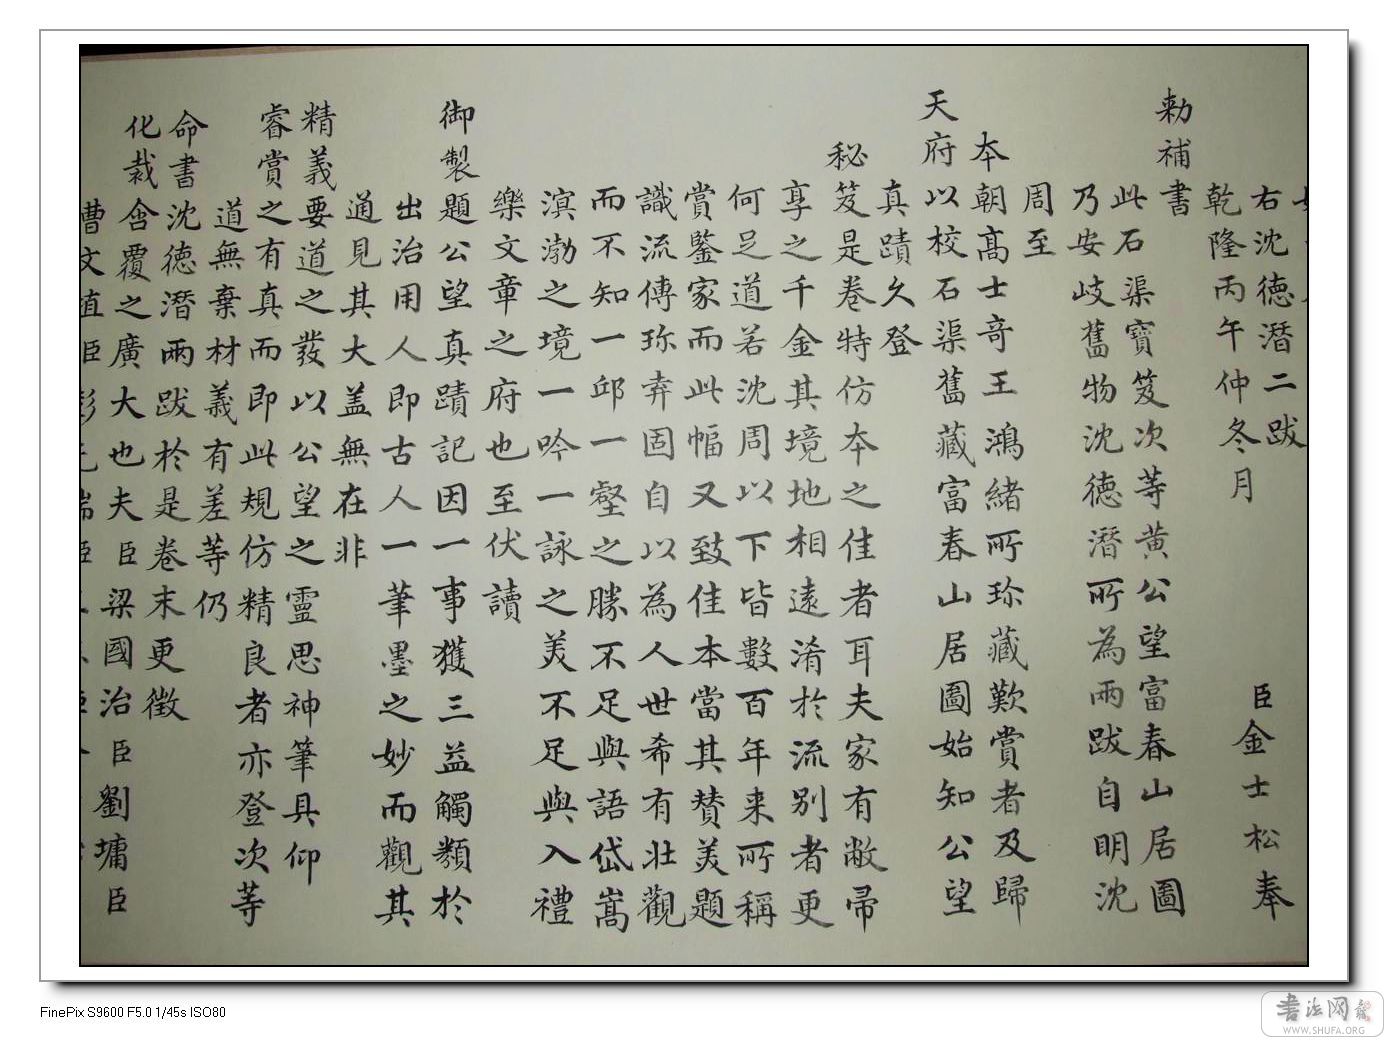 右沈德潛二跋
乾隆丙午仲冬月 臣金士松奉
勅補書
此石渠寶笈次等黃公望富春山居圖
乃安岐舊物沈德潛所為兩跋自明沈
周至
本朝高士奇王鴻緒所珍藏歎賞者及歸
天府以校石渠舊藏富春山居圖始知公望
真蹟久登
秘笈是卷特仿本之佳者耳夫家有敝帚
享之千金其境地相遠淆於流別者更
何足道若沈周以下皆數百年来所稱
賞鑒家而此幅又致佳本當其贊美題
識流傳珎弆固自以為人世希有壯觀
而不知一邱一壑之勝不足與語岱嵩
溟渤之境一吟一詠之美不足與入禮
樂文章之府也至伏讀
御製題公望真蹟記因一事獲三益觸類於
出治用人即古人一筆墨之妙而觀其
通見其大盖無在非
精義要道之發以公望之靈思神筆具仰
睿賞之有真而即此規仿精良者亦登次等
道無棄材義有差等仍
命書沈德潛兩跋於是卷末更徵
化裁含覆之廣大也夫臣梁國治臣劉墉臣
曹文埴臣彭元瑞臣
FinePix S9600 F5.0 1/45s ISO80
書法网
WWW.SHUFA.ORG